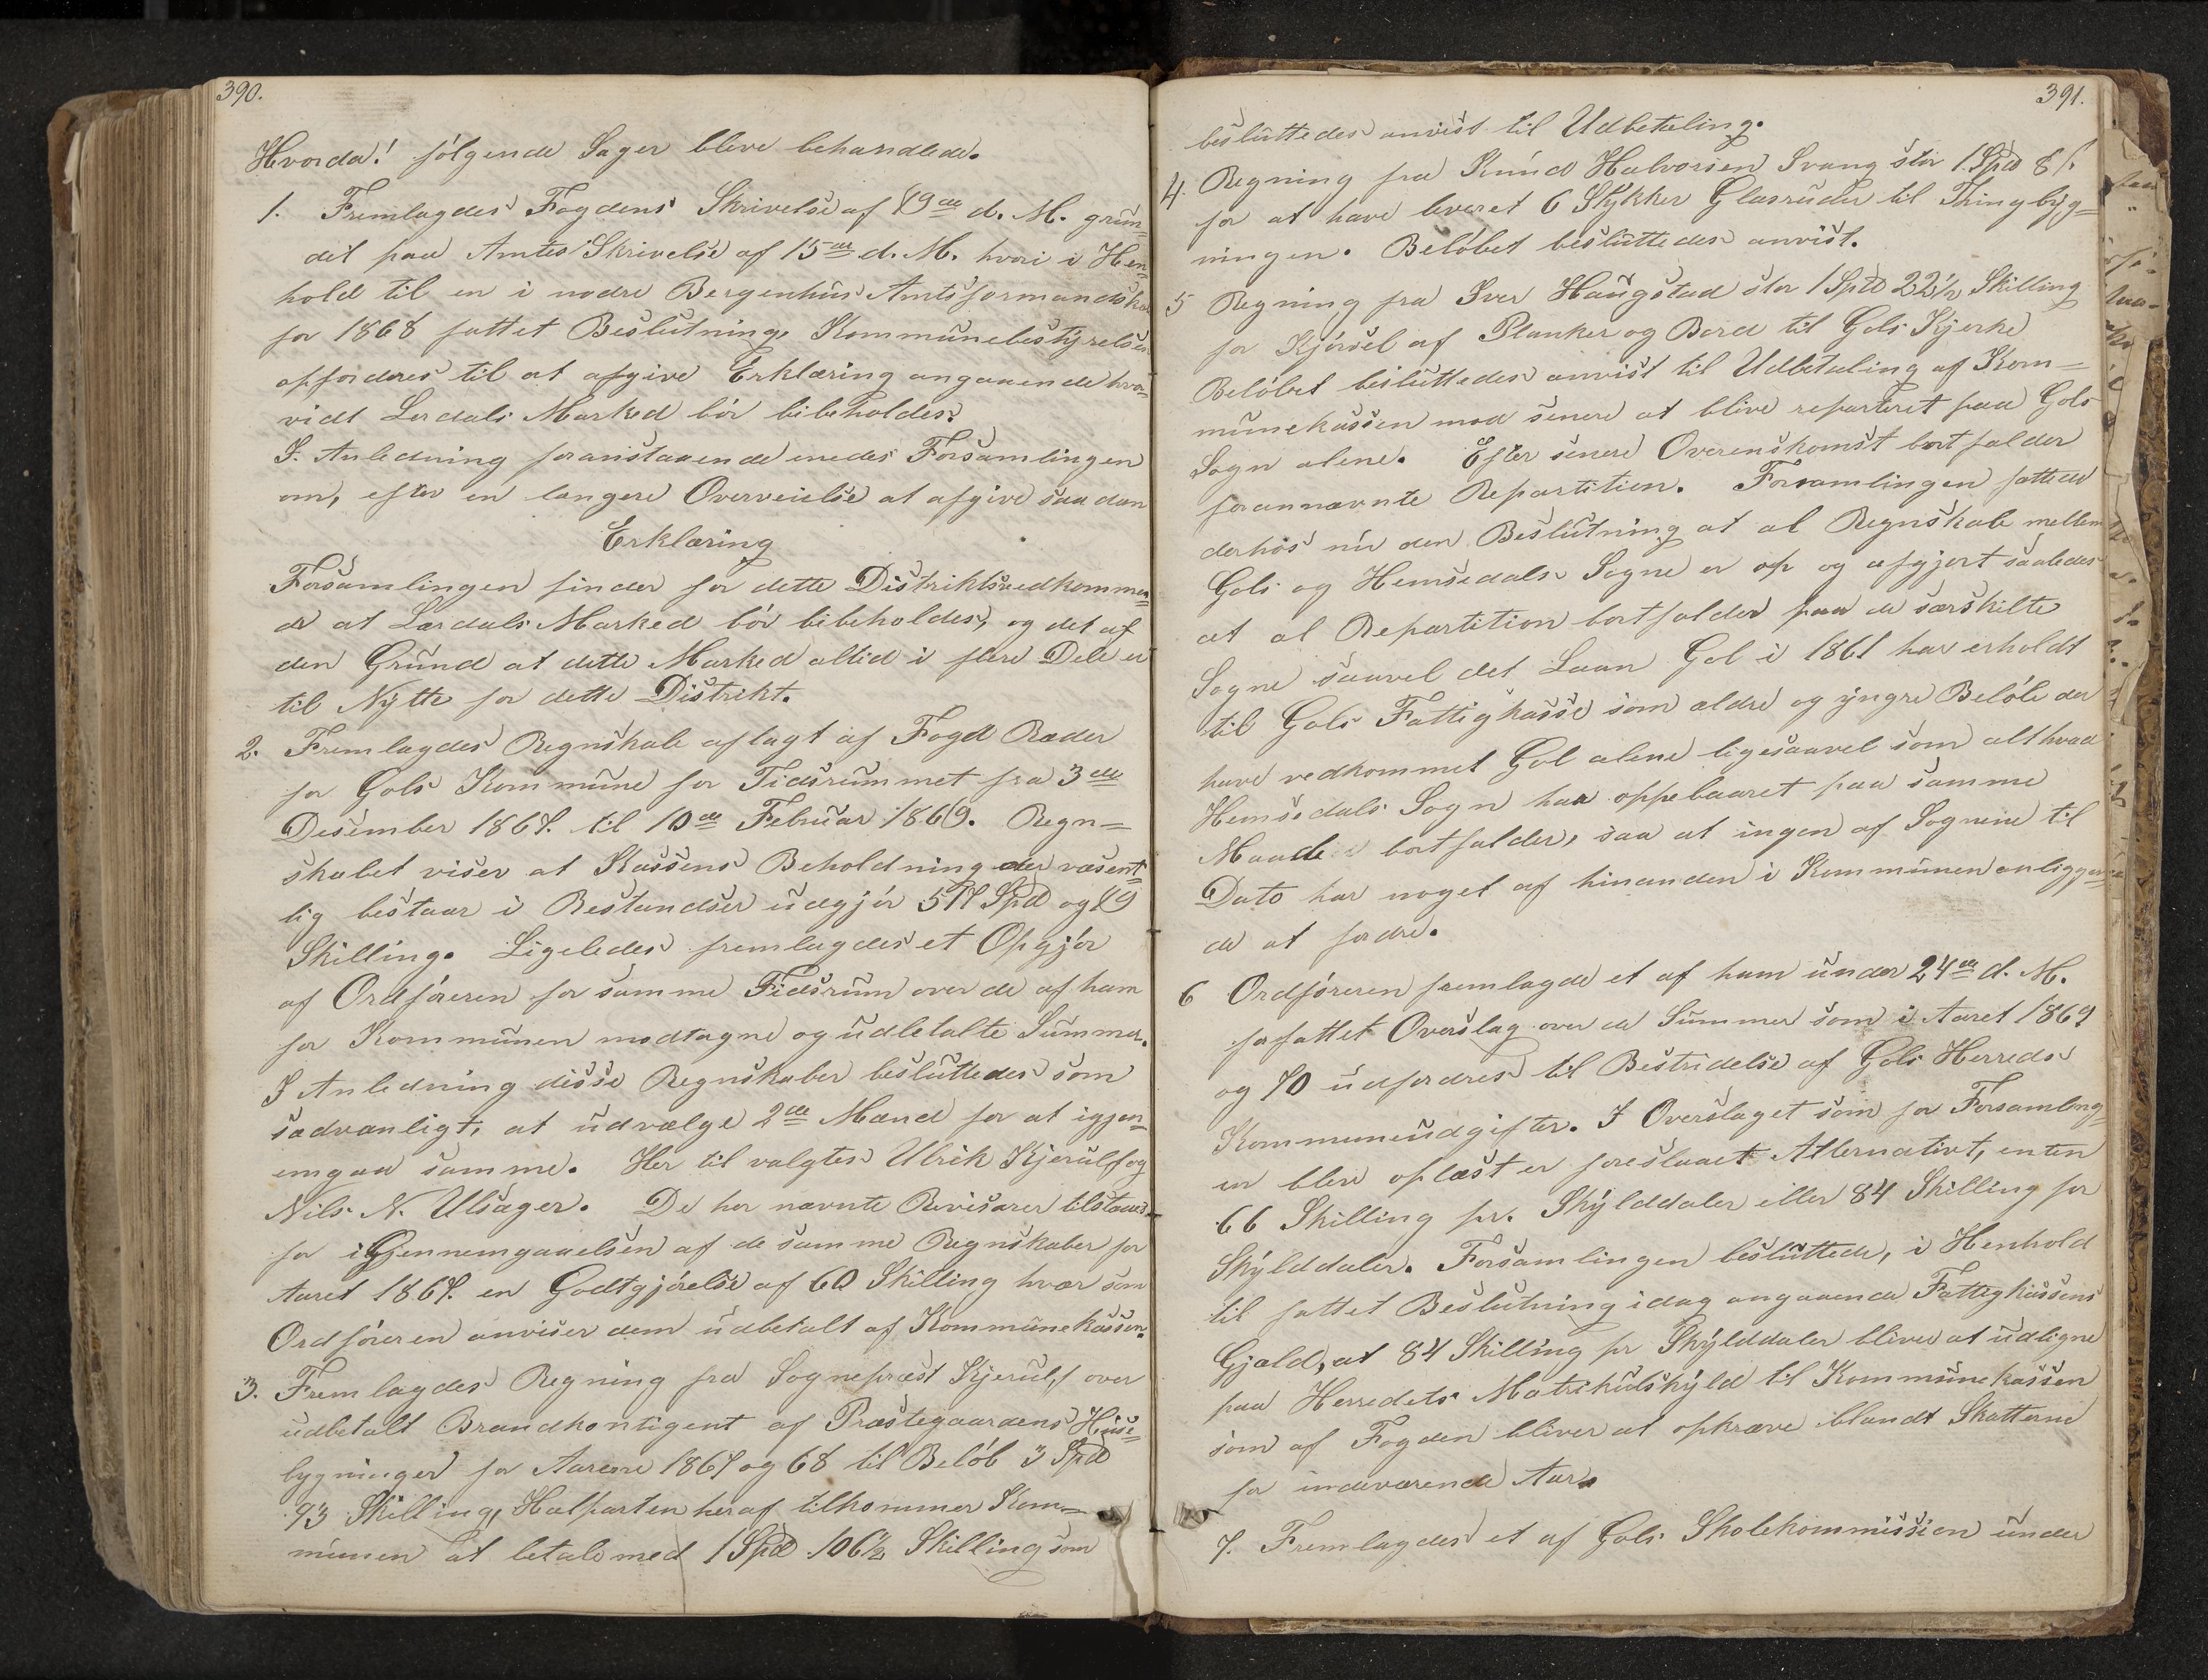 390.
Hvorda! følgende Sager bleve behandlede.
1. Fremlagdes Fogdens Skrivelse af 19de d. M. grun-
det paa Amtes Skrivelse af 15de d. M. hvori i Hen-
hold til en i nodre Bergenhus Amtsformandskab
for 1868 fattet Beslutning, Kommunebestyrelsen
opfordres til at afgive Erklæring angaaende hvor-
vidt Lerdals Marked bör bibeholdes?
I. Anledning foranstaaende enedes Forsamlingen
om, efter en længere Overveielse at afgive saadan
Erklæring
Forsamlingen finder for dette Distriktsvedkommen-
de at Lærdals Marked bör bibeholdes, og det af
den Grund at dette Marked altid i flere Dele er
til Nytte for dette Distrikt.
2. Fremlagdes Regnskab aflagt af Fogd Ræder
for Gols Kommune for Tidsrummet fra 3de
Desember 1867. til 10de Februar 1869. Regn-
skabet viser at Kassens Beholdning der væsent-
lig bestaar i Restandser udgjör Spd og 19
Skilling. Ligeledes fremlagdes et Opgjör
af Ordföreren for samme Tidsrum over de af ham
for Kommunen modtagne og udbetalte Summer.
I Anledning disse Regnskaber besluttedes som
sædvanligt, at udvælge 2de Mænd for at igjen-
emgaa samme. Her til valgtes Ulrik Kjerulf og
Nils N. Ulsager. De her nævnte Revisorer tilstaaes
for iGjennemgaaelsen af de samme Regnskaber for
Aaret 1867. en Godtgjörelse af 60 Skilling hvær som
Ordföreren anviser dem udbetalt af Kommunekassen.
3. Fremlagdes Regning fra Sognepræst Kjerulf over
udbetalt Brandkontigent af Præstegaardens Huse-
bygninger for Aarene 1867 og 68 til Belöb 3 Spd
93 Skilling, Halparten heraf tilkommer Kom-
munen at betale med 1 Spd 106½ Skilling som
391.
besluttedes anvist til Udbetaling.
4. Regning fra Knud Halvorsen Svang stor 1 Spd 8 s.
for at have leveret 6 Stykker Glasruder til Thingbyg-
ningen. Belöbet besluttedes anvist.
5 Regning fra Iver Haugstad stor 1 Spd 22½ Skilling
for Kjörsel af Planker og Bord til Gols Kjerke
Belöbet besluttedes anvist til Udbetaling af Kom-
munekassen mod senere at blive reparteret paa Gols
Sogn alene. Efter senere Overenskomst bortfalder
forannævnte Repartition. Forsamlingen fattede
derhos nu den Beslutning at al Regnskab mellem
Gols og Hemsedals Sogne er op og afgjort saaledes
at al Repartition bortfalder paa de særskilte
Sogne saavel det Laan Gol i 1861 har erholdt
til Gols Fattigkasse som ældre og yngre Belöb der
have vedkommet Gol alene ligesaavel som alt hvad
Hemsedals Sogn har oppebaaret paa samme
Maade bortfalder, saa at ingen af Sognene til
Dato har noget af hinanden i Kommunen anliggen-
de at fordre.
6 Ordföreren fremlagde et af ham under 24de d. M.
forfattet Overslag over de Summer som i Aaret 1869
og 70 udfordres til Bestridelse af Gols Herreds
Kommuneudgifter. I Overslaget som for Forsamling-
en blev oplæst er foreslaaet Alternativt, enten
66 Skilling pr. Skylddaler eller 84 Skilling pr
Skylddaler. Forsamlingen besluttede, i Henhold
til fattet Beslutning idag angaaende Fattigkassens
Gjæld, at 84 Skilling pr Skylddaler bliver at udligne
paa Herredets Matrikulskyld til Kommunekassen
som af Fogden bliver at opkræve blandt Skatterne
for indeværende Aar.
7. Fremlagdes et af Gols Skolekommission under